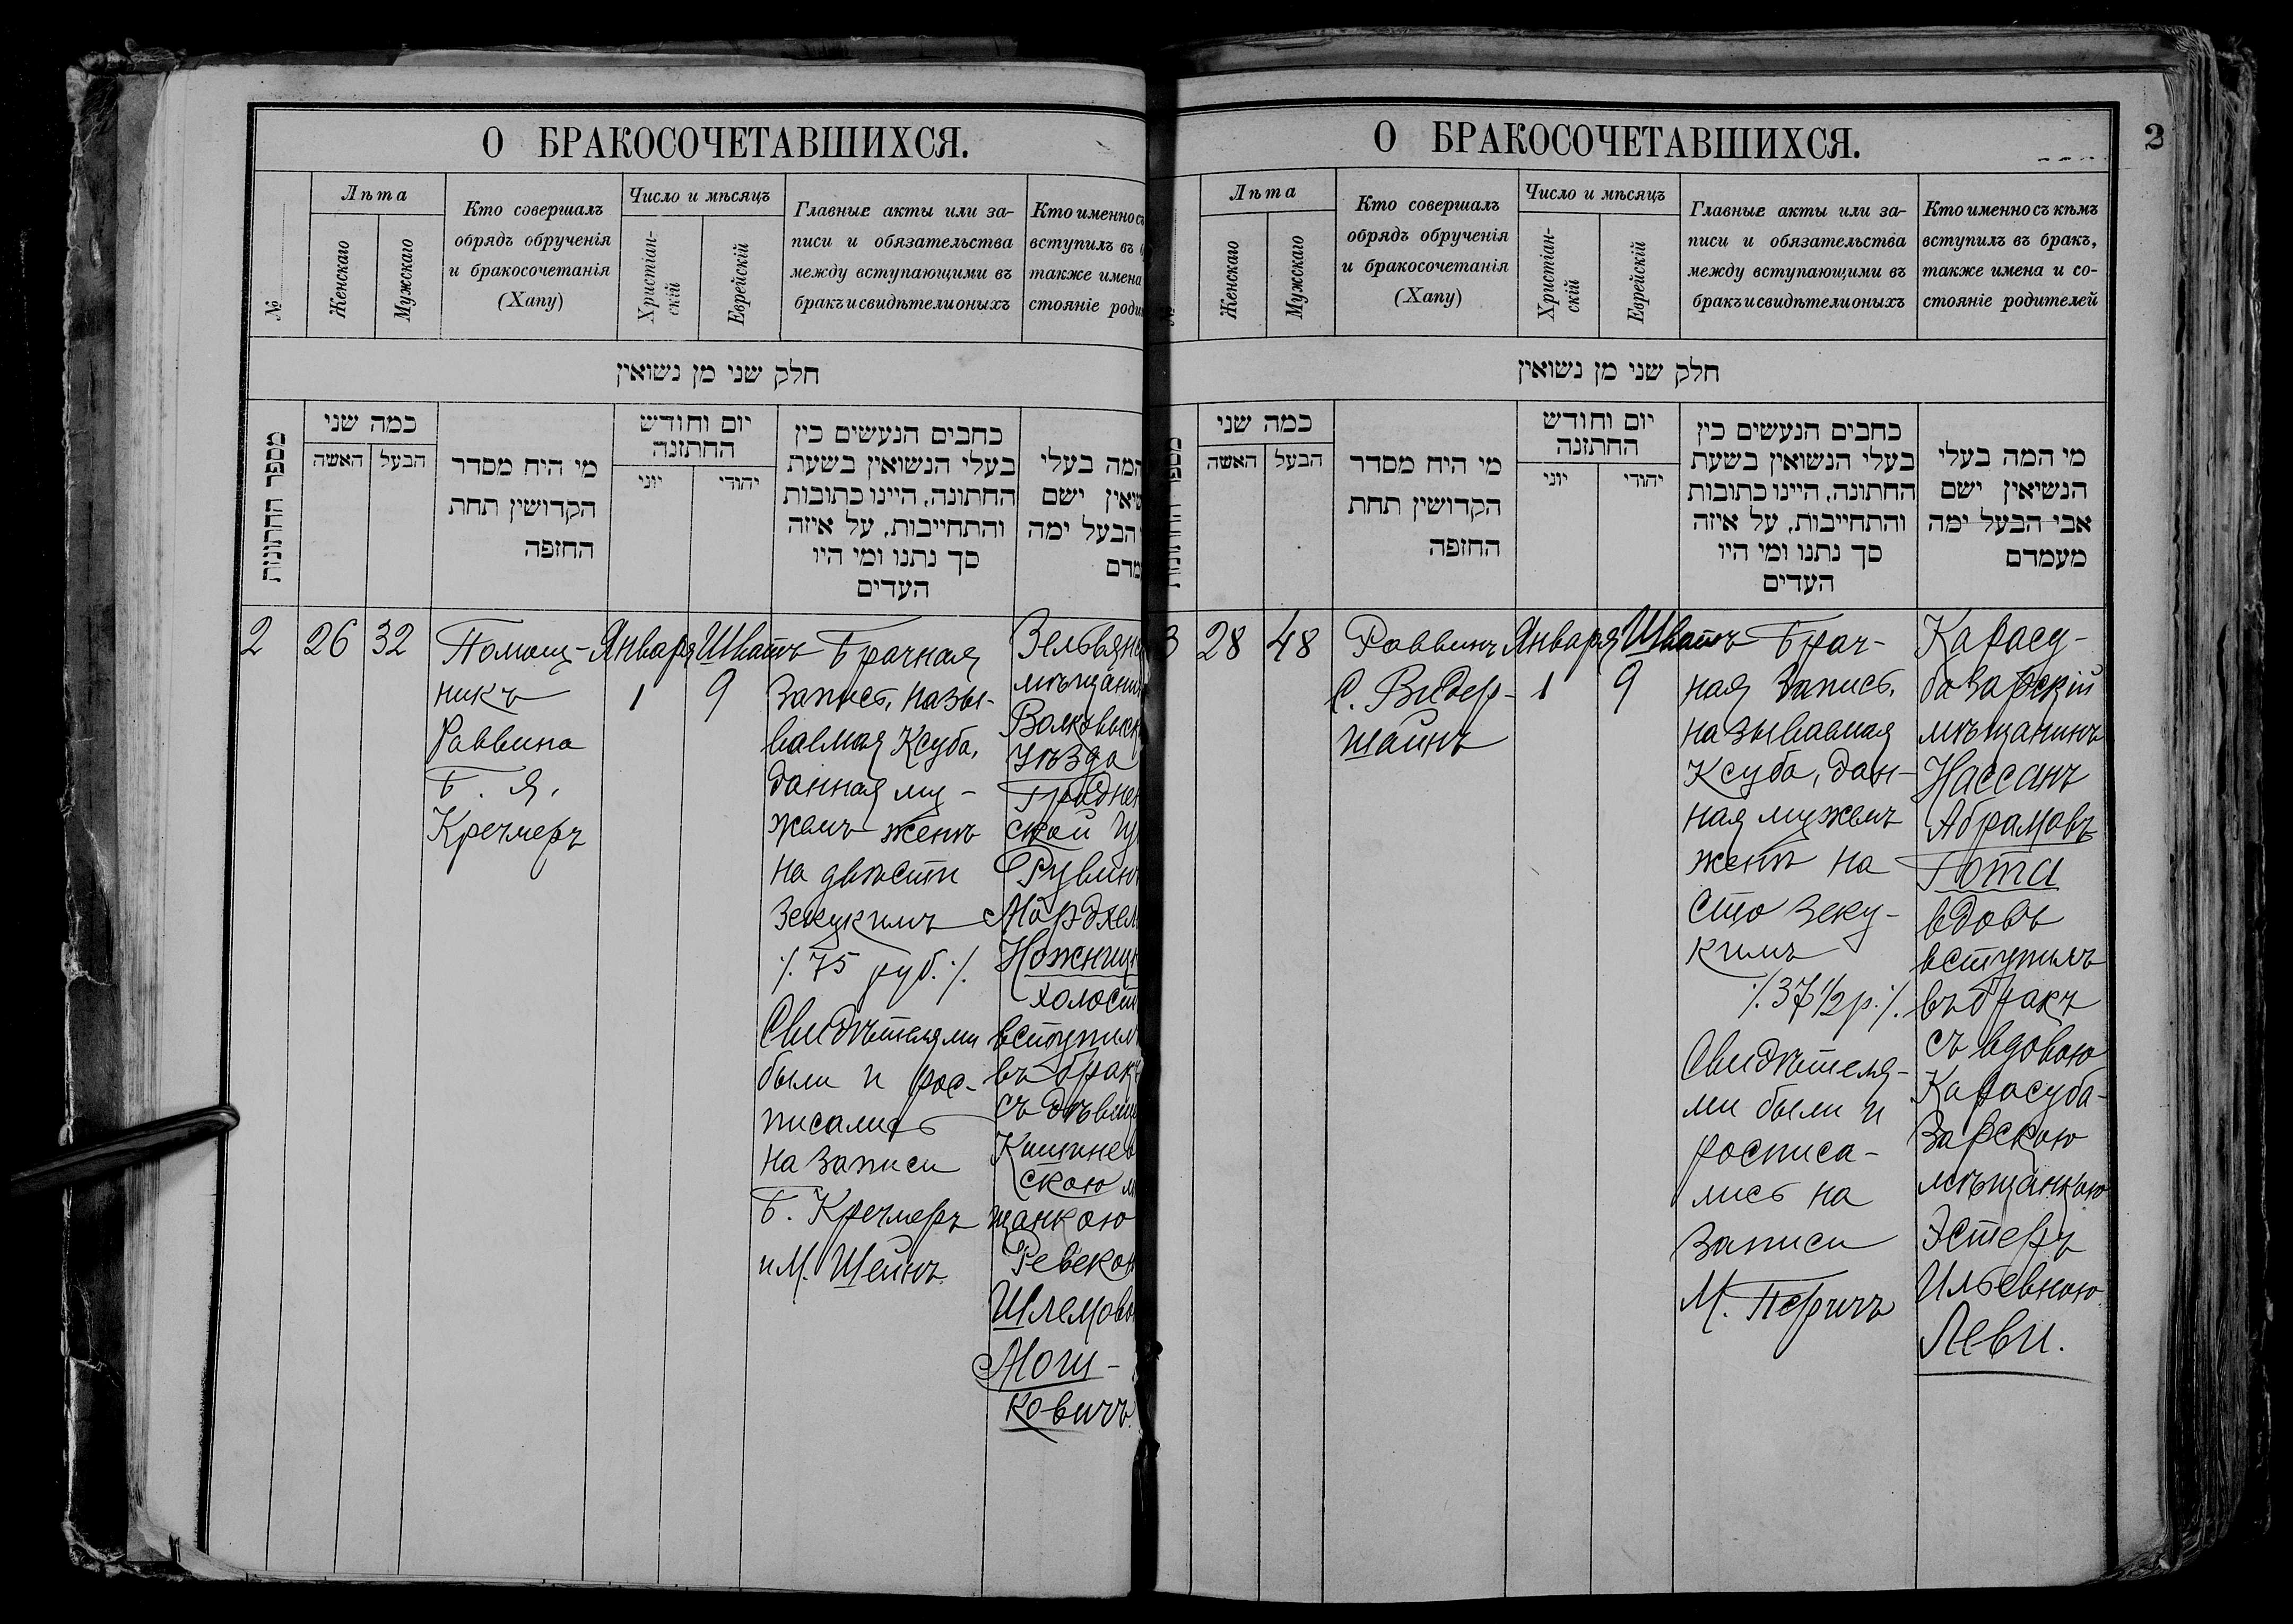 О БРАКОСОЧЕТАВШИХСЯ.
№
Лѣта
Женскаго
Мужскаго
Кто совершалъ
обрядъ обрученія
и бракосочетанія
(Хапу)
Число и мѣсяцъ
Христіан-
скій
Еврейскій
Главные акты или за-
писи и обязательства
между вступающими въ
бракъ и свидѣтели оныхъ
Кто именно съ
вступилъ въ
также имена
стояніе роди
חלק שני מן נשואין
מספר החתונות
כמה שני
האשה
הבעל
מי היח מסדר
הקדושין תחת
החזפה
יום וחודש
החתזנה
יוני
יהודי
כחבים הנעשים כין
בעלי הנשואין בשעת
החתונה, היינו כתובות
והתחייבות, על איזה
סך נתנו ומי היו
העדים
המה בעלי
שיאין ישם
הבעל ימה
מדם
2
26
32
Помощ-
никъ
Раввина
Б. Я.
Кречмеръ
Января
1
Шватъ
9
Брачная
запись, назы-
ваемая Ксуба,
данная му-
жемъ женѣ
на двѣсти
зекукимъ
⁒ 75 руб. ⁒
Свидѣтелями
были и рос-
писались
на записи
Б. Кречмеръ
и М. Шейнъ.
Зельвянс
мѣщани
Волковыск
уѣзда
Гроднен
ской гу
Рувинъ
Мордхел
Ножниц
холост
вступил
въ бракъ
съ дѣвиц
Кишинев
скою м
щанкою
Ревекою
Шлемовн
Мош-
ковичъ.
О БРАКОСОЧЕТАВШИХСЯ.
2
№
Лѣта
Женскаго
Мужскаго
Кто совершалъ
обрядъ обрученія
и бракосочетанія
(Хапу)
Число и мѣсяцъ
Христіан-
скій
Еврейскій
Главные акты или за-
писи и обязательства
между вступающими въ
бракъ и свидѣтели оныхъ
Кто именно съ кѣмъ
вступилъ въ бракъ,
также имена и со-
стояніе родителей
חלק שני מן נשואין
כמה שני
האשה
הבעל
מי היח מסדר
הקדושין תחת
החזפה
יום וחודש
החתזנה
יוני
יהודי
כחבים הנעשים כין
בעלי הנשואין בשעת
החתונה, היינו כתובות
והתחייבות, על איזה
סך נתנו ומי היו
העדים
מי המה בעלי
הנשיאין ישם
אבי הבעל ימה
מעמדם
3
28
48
Раввинъ
С. Видер-
шайнъ
Января
1
Шватъ
9
Брач-
ная запись,
называемая
Ксуба, дан-
ная мужемъ
женѣ на
сто зеку-
кимъ
⁒ 37 1/2 р. ⁒
Свидѣтеля-
ми были и
росписа-
лись на
записи
М. Перичъ
Карасу-
базарскій
мѣщанинъ
Нассанъ
Абрамовъ
Гота
вдовъ
вступилъ
въ бракъ
съ вдовою
Карасуба-
зарскою
мѣщанкою
Эстеръ
Ильевною
Леви.